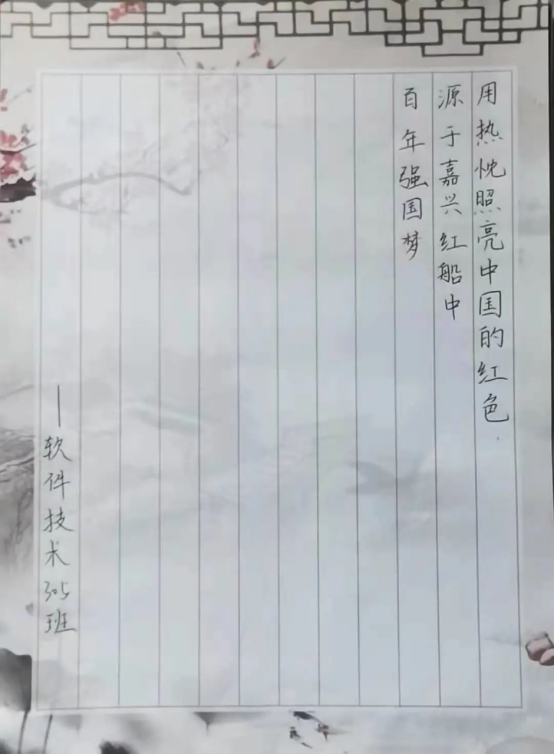 用热忱照亮中国的红色
源于嘉兴红船中
百年强国梦
—软件技术305班